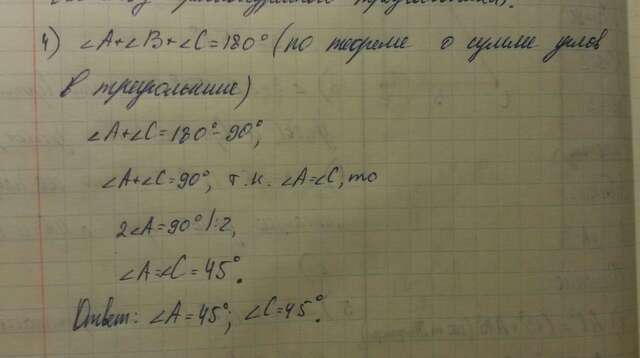 4) ∠A+∠B+∠C=180° (по теореме о сумме углов
в треугольнике)
∠A+∠C=180°-90°,
∠A+∠C=90°, т.к. ∠A=∠C, то
2∠A=90° |:2,
∠A=∠C=45°.
Ответ: ∠A=45°; ∠C=45°.